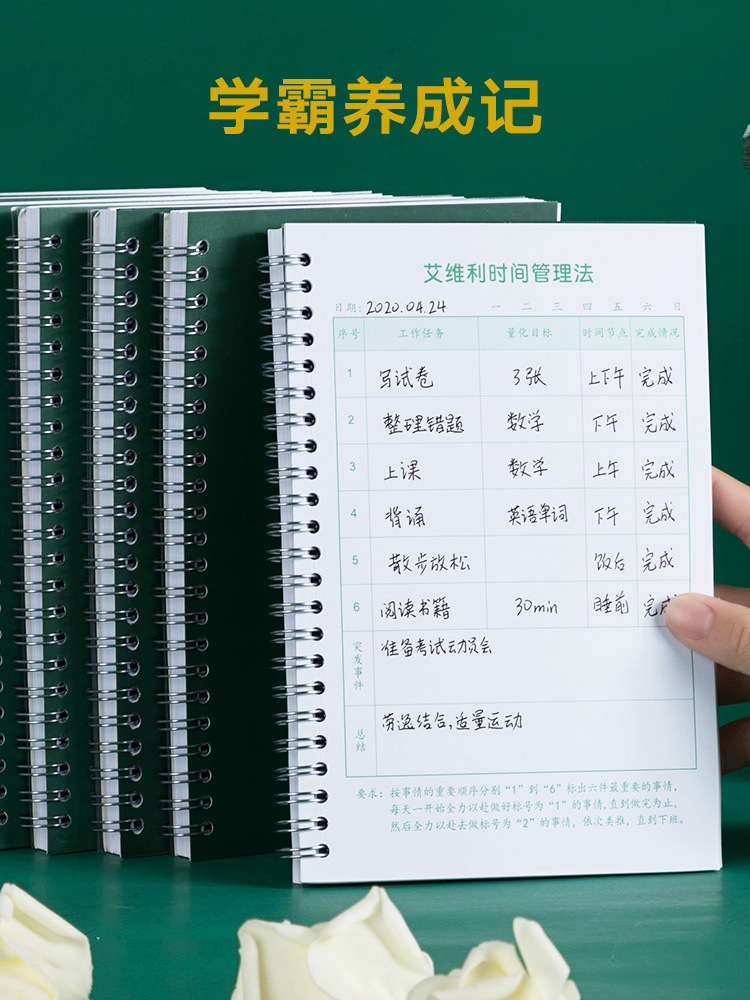 学霸养成记
艾维利时间管理法
日期: 2020.04.24 一 二 三 四 五 六 日
序号 工作任务 量化目标 时间节点 完成情况
1 写试卷 3张 上下午 完成
2 整理错题 数学 下午 完成
3 上课 数学 上午 完成
4 背诵 英语单词 下午 完成
5 散步放松 饭后 完成
6 阅读书籍 30min 睡前 完成
突发事件 准备考试动员会
总结 劳逸结合,适量运动
要求: 按事情的重要顺序分别“1”到“6”标出六件最重要的事情,
每天一开始全力以赴做好标号为“1”的事情,直到做完为止,
然后全力以赴去做标号为“2”的事情，依次类推，直到下班。